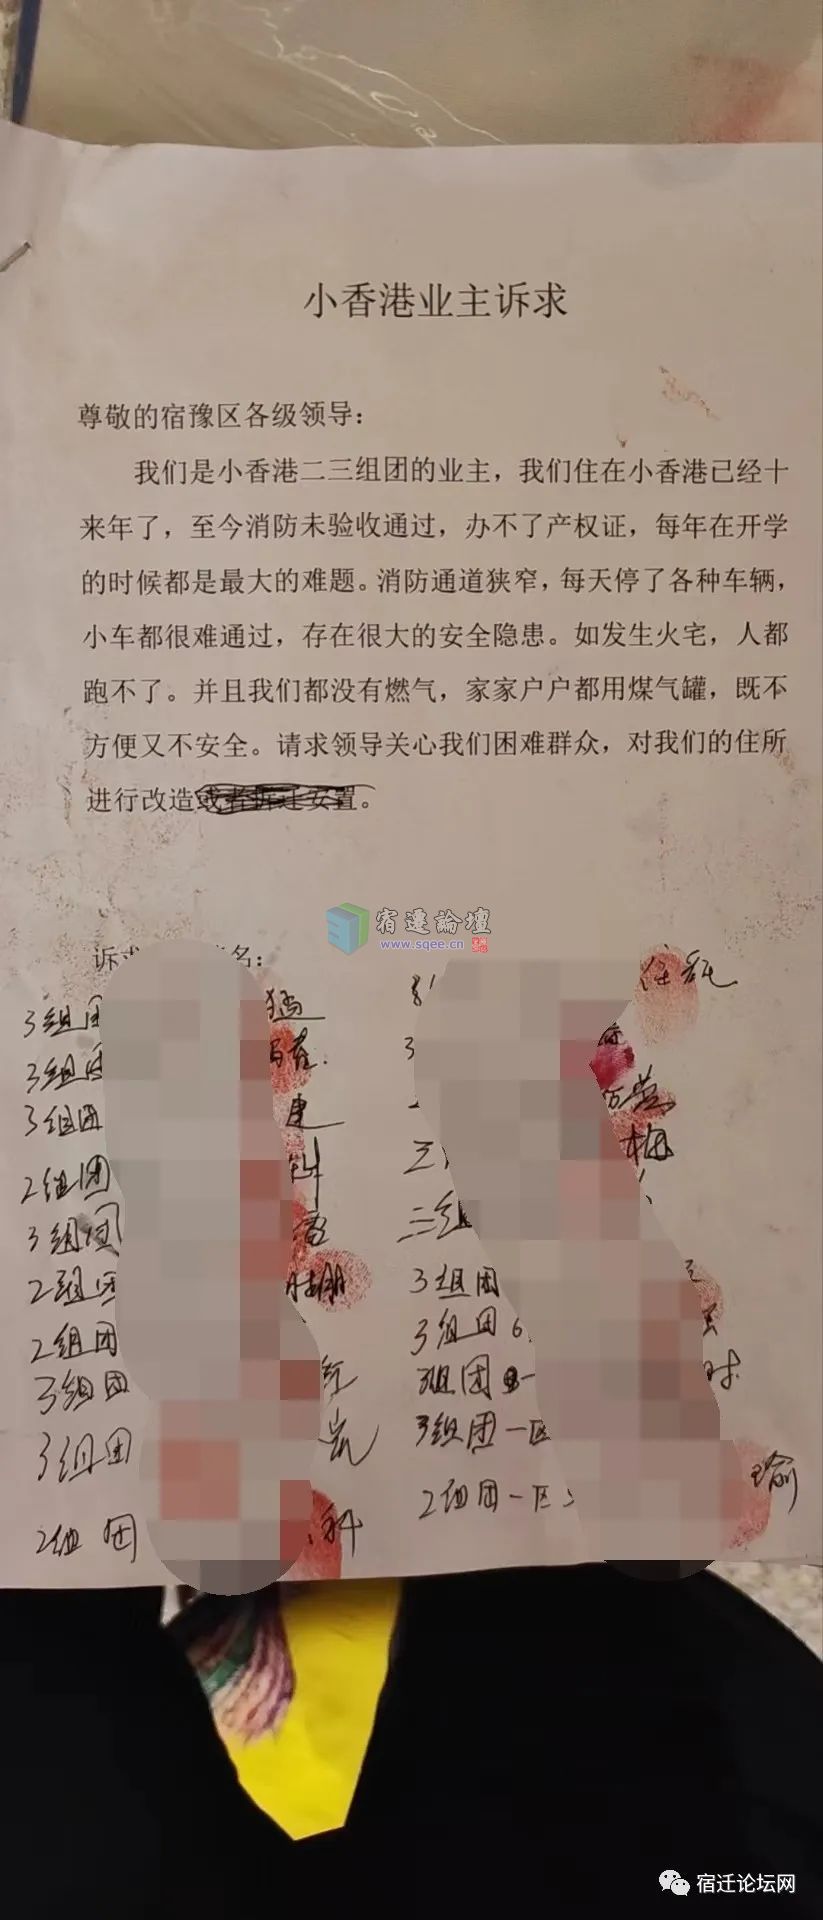 小香港业主诉求
尊敬的宿豫区各级领导：
我们是小香港二三组团的业主，我们住在小香港已经十
来年了，至今消防未验收通过，办不了产权证，每年在开学
的时候都是最大的难题。消防通道狭窄，每天停了各种车辆，
小车都很难通过，存在很大的安全隐患。如发生火宅，人都
跑不了。并且我们都没有燃气，家家户户都用煤气罐，既不
方便又不安全。请求领导关心我们困难群众，对我们的住所
进行改造或者拆迁安置。
宿迁論壇
www.sqee.cn
诉求 名：
3组团
3组团
3组团 建
2组团
3组团
2组团
2组团
3组团 红
3组团
2组团 科
梅
二组
3组团
3组团 6
3组团
3组团一区
2组团一区 瑜
宿迁论坛网